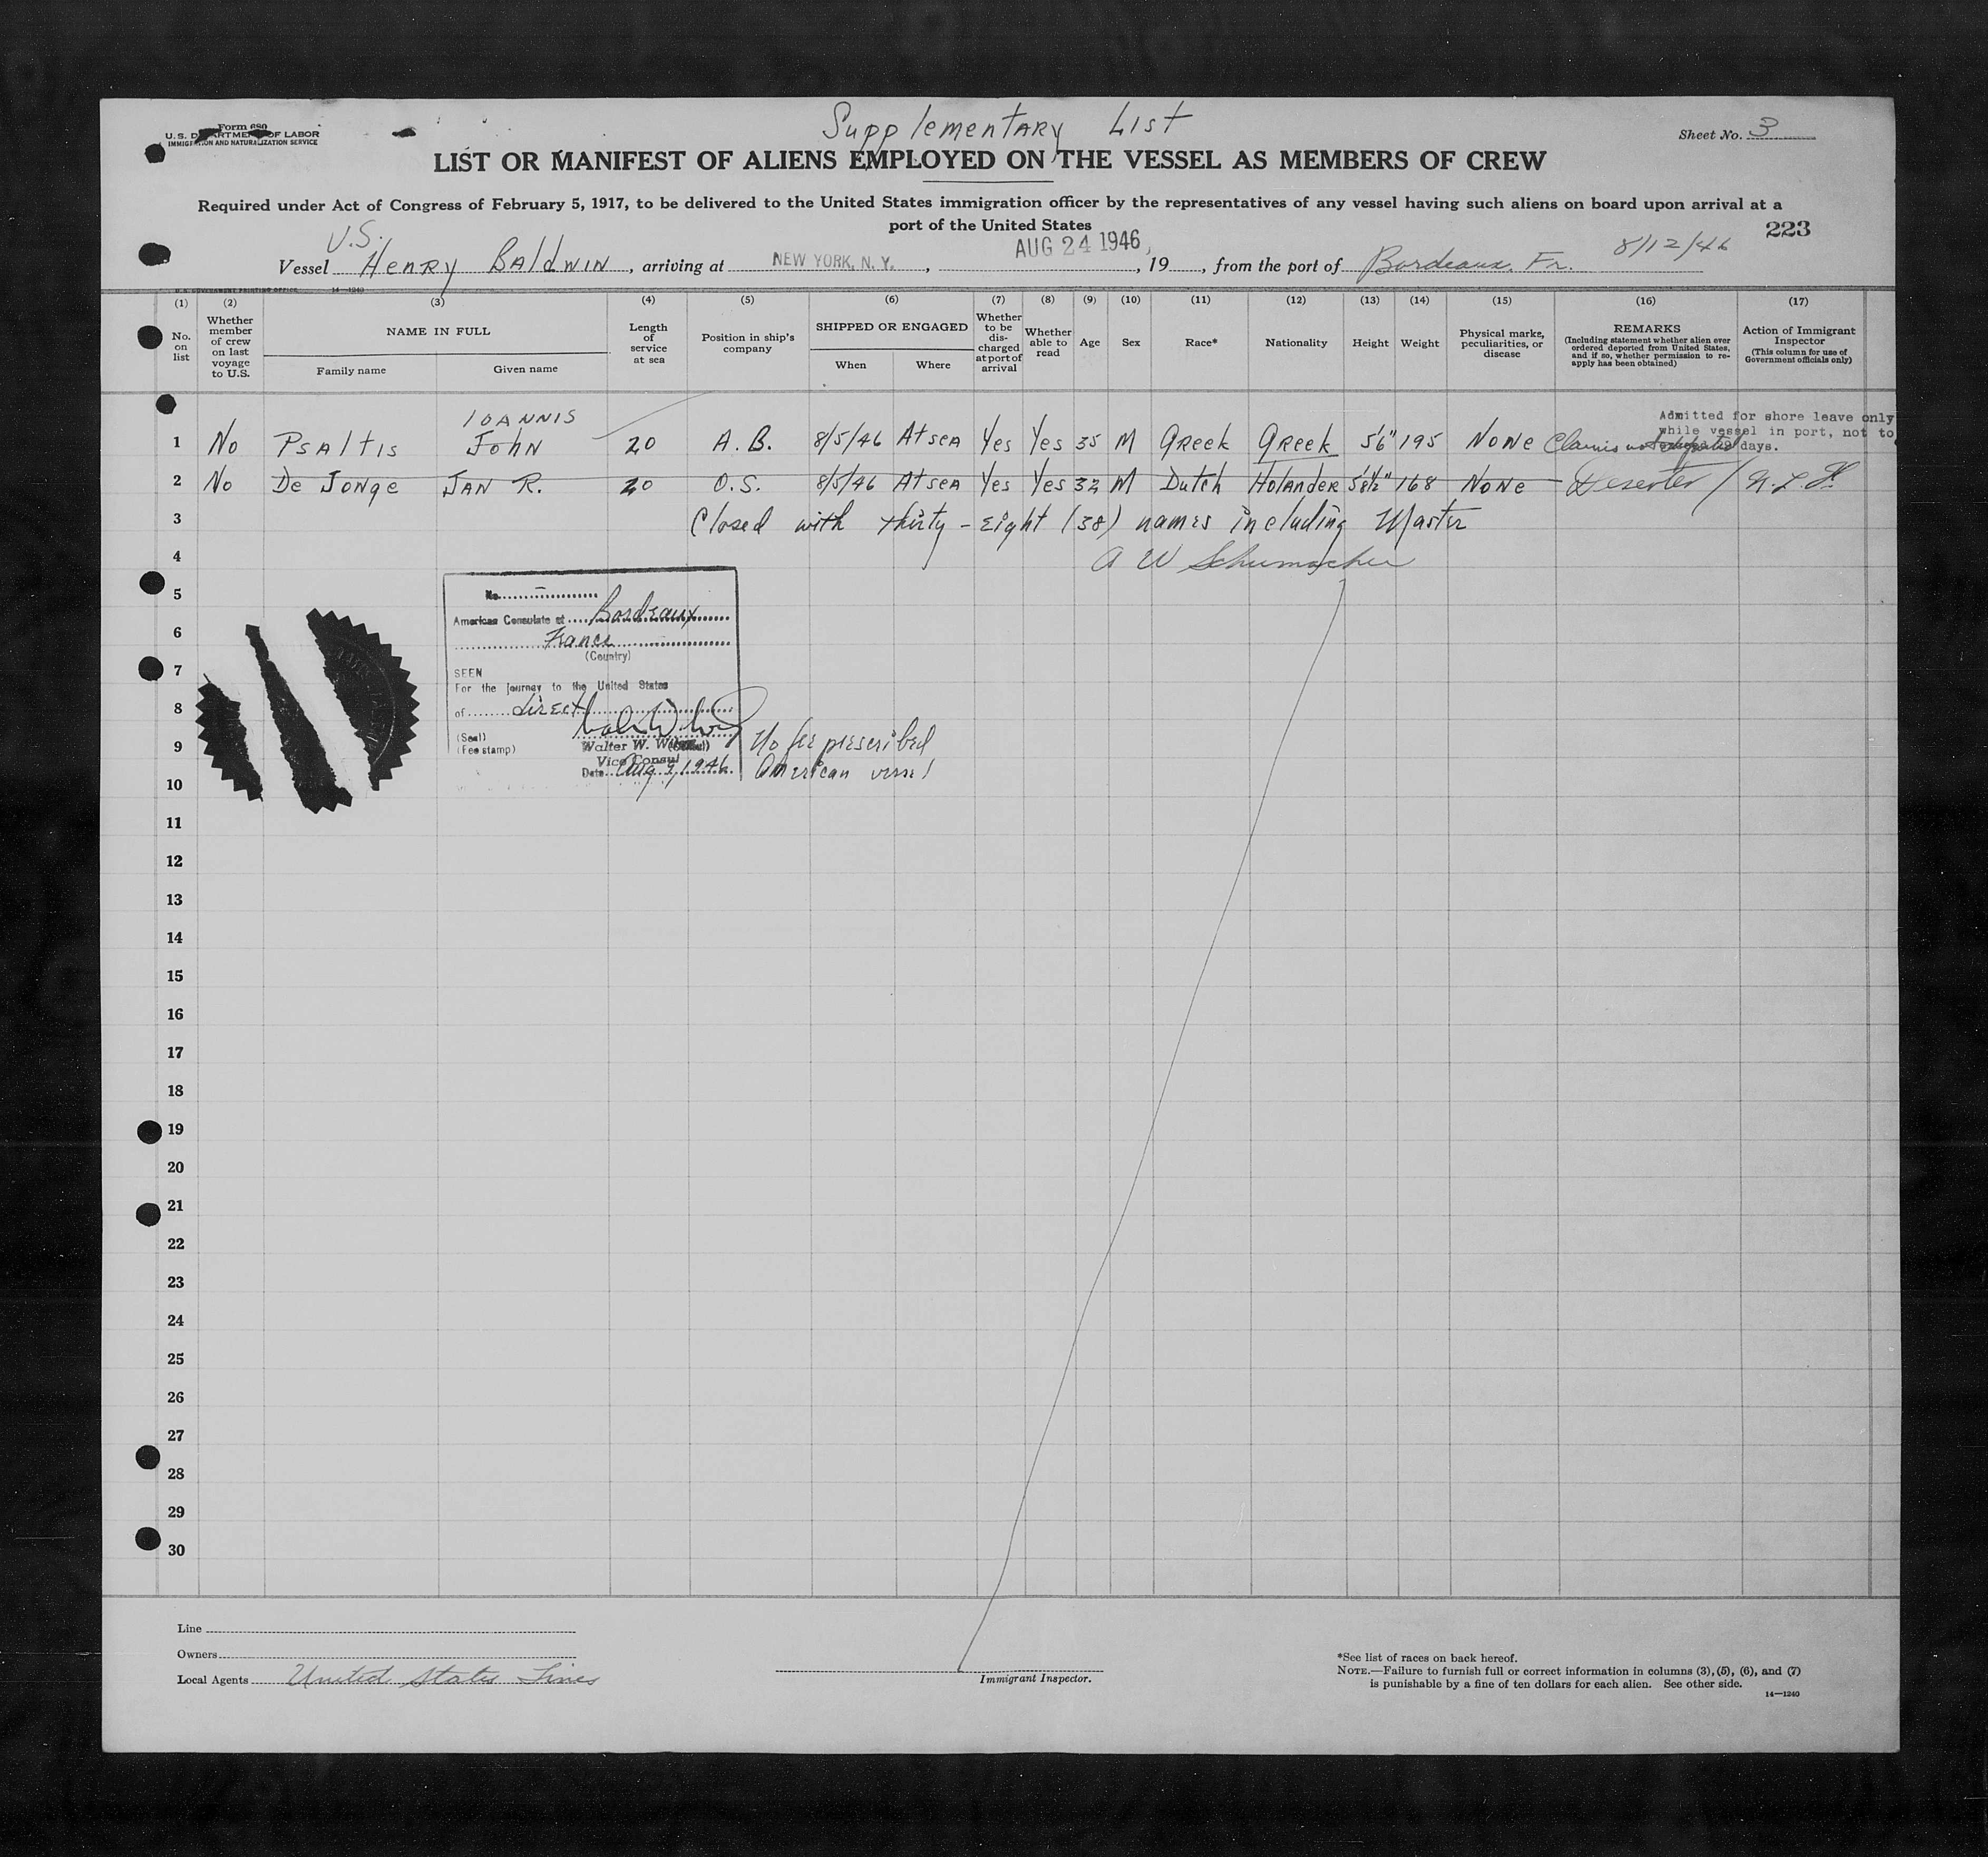 Form 680
U.S. DEPARTMENT OF LABOR
IMMIGRATION AND NATURALIZATION SERVICE
Supplementary List
Sheet No. 3
LIST OR MANIFEST OF ALIENS EMPLOYED ON THE VESSEL AS MEMBERS OF CREW
Required under Act of Congress of February 5, 1917, to be delivered to the United States immigration officer by the representatives of any vessel having such aliens on board upon arrival at a
port of the United States
223
U.S.
AUG 24 1946
8/12/46
Vessel Henry Baldwin, arriving at NEW YORK, N. Y., , 19 , from the port of Bordeaux. Fr.
U.S. GOVERNMENT PRINTING OFFICE 14—1240
(1) (2) (3) (4) (5) (6) (7) (8) (9) (10) (11) (12) (13) (14) (15) (16) (17)
No. on list
Whether member of crew on last voyage to U.S.
NAME IN FULL
Family name Given name
Length of service at sea
Position in ship's company
SHIPPED OR ENGAGED
When Where
Whether to be discharged at port of arrival
Whether able to read
Age
Sex
Race*
Nationality
Height
Weight
Physical marks, peculiarities, or disease
REMARKS
(Including statement whether alien ever ordered deported from United States, and if so, whether permission to re-apply has been obtained)
Action of Immigrant Inspector
(This column for use of Government officials only)
IOANNIS
Admitted for shore leave only
while vessel in port, not to
exceed 29 days.
1 No Psaltis John 20 A. B. 8/5/46 At sea Yes Yes 35 M Greek Greek 5'6" 195 None Claims not deported
2 No De Jonge Jan R. 20 O.S. 8/5/46 At sea Yes Yes 32 M Dutch Holander 5'8½" 168 None Deserter
3 Closed with thirty-eight (38) names including Master
4 A W Schumacher
5
6
7
8
9
10
No.
American Consulate at Bordeaux
France
(Country)
SEEN
For the journey to the United States
of direct
(Seal)
(Fee stamp)
Walter W.
Vice Consul
Date Aug 9, 1946
No fee prescribed
American vessel
11
12
13
14
15
16
17
18
19
20
21
22
23
24
25
26
27
28
29
30
Line
Owners
Local Agents United States Lines
Immigrant Inspector.
*See list of races on back hereof.
NOTE.—Failure to furnish full or correct information in columns (3), (5), (6), and (7)
is punishable by a fine of ten dollars for each alien. See other side.
14—1240